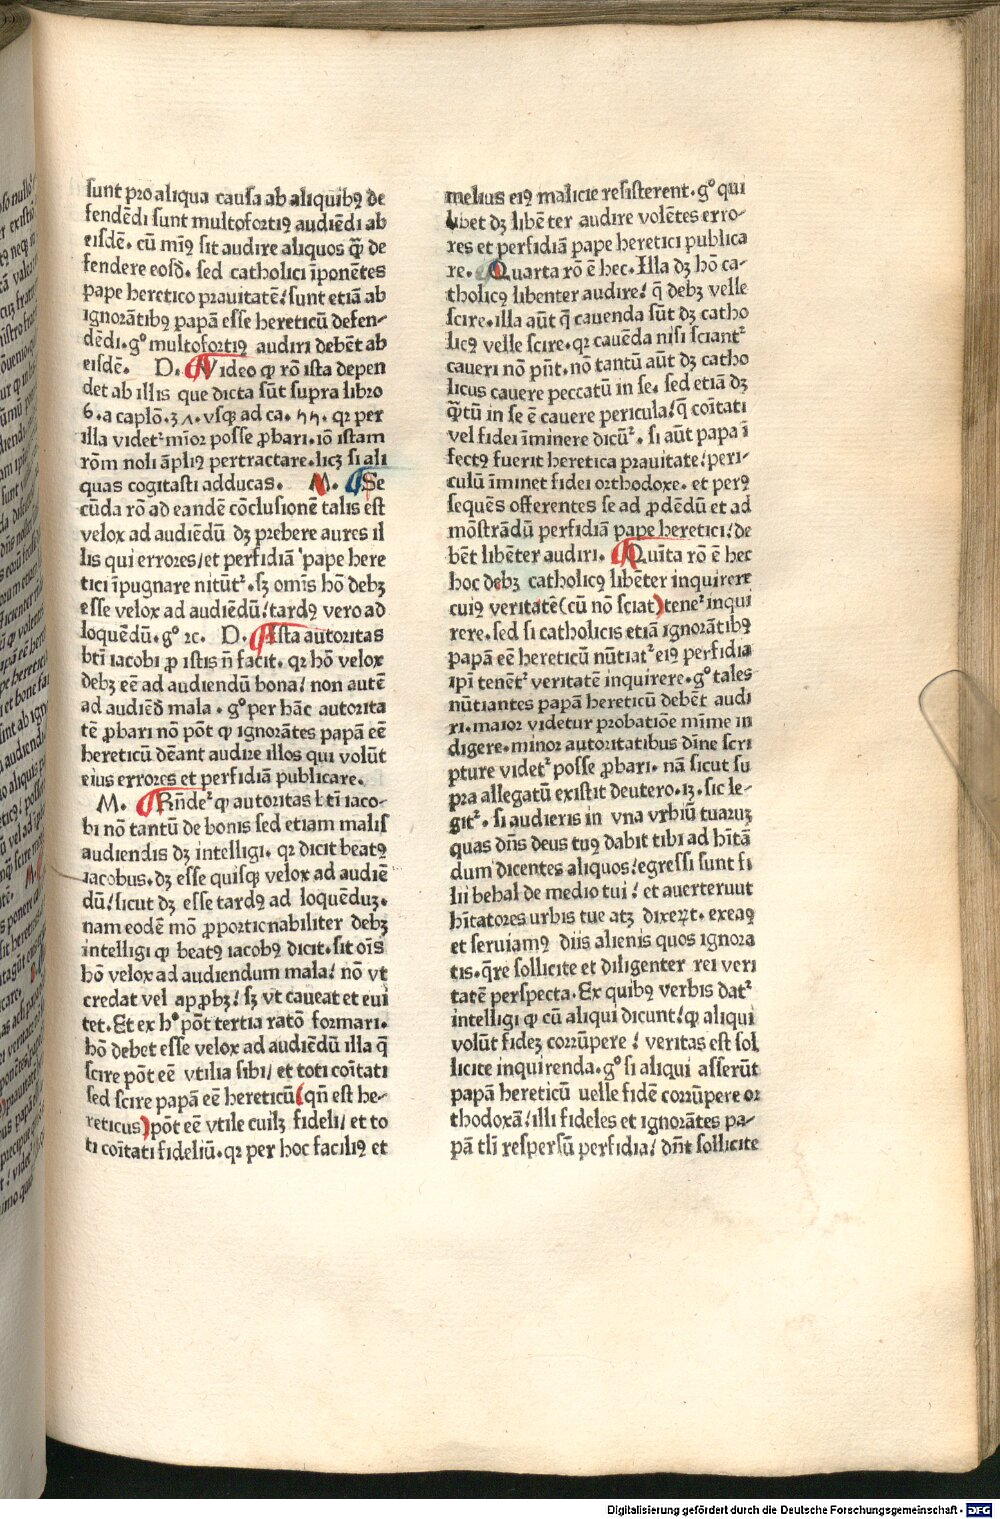 sunt pro aliqua causa ab aliquibꝰ de
fendēdi sunt multofortiꝰ audiēdi ab
eisdē. cū miꝰ sit audire aliquos q̄ de
fendere eosd̄. sed catholici īponētes
pape heretico prauitatē/ sunt etiā ab
ignorātibꝰ papā esse hereticū defen-
dēdi. gͦ multofortiꝰ audiri debēt ab
eisdē. D. Video ꝙ rō ista depen
det ab illis que dicta sūt supra libro
6. a caplō. 3 ʌ. vsqꝫ ad ca. 55. qꝛ per
illa videt᷑ mīor posse ꝓbari. iō istam
rōm noli āpliꝰ pertractare. licꝫ si ali
quas cogitasti adducas. M. Se
cūda rō ad eandē cōclusionē talis est
velox ad audiēdū dꝫ prebere aures il
lis qui errores/ et perfidiā pape here
tici īpugnare nitūt᷑. sꝫ omīs hō debꝫ
esse velox ad audiēdū/ tardꝰ vero ad
loquēdū. gͦ ꝛc. D. Ista autoritas
btī iacobi ꝓ istis n̄ facit. qꝛ hō velox
debꝫ eē ad audiendū bona/ non autē
ad audiēd̄ mala. gͦ per hāc autorita
tē ꝓbari nō pōt ꝙ ignorātes papā eē
hereticū dēant audire illos qui volūt
eius errores et perfidiā publicare.
M. Rn̄de᷑ ꝙ autoritas btī iaco-
bi nō tantū de bonis sed etiam malis
audiendis dꝫ intelligi. qꝛ dicit beatꝰ
iacobus. dꝫ esse quisqꝫ velox ad audiē
dū/ sicut dꝫ esse tardꝰ ad loquēduꝫ.
nam eodē mō ꝓportionabiliter debꝫ
intelligi ꝙ beatꝰ iacobꝰ dicit. sit oīs
hō velox ad audiendum mala/ nō vt
credat vel apꝓbꝫ/ sꝫ vt caueat et eui
tet. Et ex hͦ pōt tertia ratō formari.
hō debet esse velox ad audiēdū illa q̄
scire pōt eē vtilia sibi/ et toti cōitati
sed scire papā eē hereticū (qn̄ est he-
reticus) pōt eē vtile cuilꝫ fideli/ et to
ti cōitati fideliū. qꝛ per hoc faciliꝰ et
melius eiꝰ malicie resisterent. gͦ qui
libet dꝫ libēter audire volētes erro-
res et perfidiā pape heretici publica
re. Quarta rō ē hec. Illa dꝫ hō ca-
tholicꝰ libenter audire/ q̄ debꝫ velle
scire. illa aūt q̄ cauenda sūt dꝫ catho
licꝰ velle scire. qꝛ cauēda nisi sciant᷑
caueri nō pn̄t. nō tantū aūt dꝫ catho
licus cauere peccatū in se. sed etiā dꝫ
q̄tū in se ē cauere pericula/ q̄ cōitati
vel fidei īminere dicū᷑. si aūt papa ī
fectꝰ fuerit heretica prauitate/ peri-
culū īminet fidei orthodoxe. et perꝰ
sequēs offerentes se ad ꝓdēdū et ad
mōstrādū perfidiā pape heretici/ de
bēt libēter audiri. Quīta rō ē hec
hoc debꝫ catholicꝰ libēter inquirere
cuiꝰ veritatē (cū nō sciat) tene᷑ inqui
rere. sed si catholicis etiā ignorātibꝰ
papā eē hereticū nūtiat᷑ eiꝰ perfidia
ipī tenēt᷑ veritatē inquirere. gͦ tales
nūtiantes papā hereticū debēt audi
ri. maior videtur probatiōe mīme in
digere. minor autoritatibus dīne scri
pture videt᷑ posse ꝓbari. nā sicut su
pra allegatū existit deutero. 13. sic le-
git᷑. si audieris in vna vrbiū tuaruꝫ
quas dn̄s deus tuꝰ dabit tibi ad hītā
dum dicentes aliquos/ egressi sunt fi
lii behal de medio tui/ et auerterunt
hītatores urbis tue atꝫ dixeꝝt. exeaꝰ
et seruiamꝰ diis alienis quos ignora
tis. q̄re sollicite et diligenter rei veri
tatē perspecta. Ex quibꝰ verbis dat᷑
intelligi ꝙ cū aliqui dicunt/ ꝙ aliqui
volūt fideꝫ corrūpere/ veritas est sol
licite inquirenda. gͦ si aliqui asserūt
papā hereticū uelle fidē corrūpere or
thodoxā/ illi fideles et ignorātes pa-
pā tlī respersū perfidia/ dn̄t sollicite
Digitalisierung gefördert durch die Deutsche Forschungsgemeinschaft - DFG